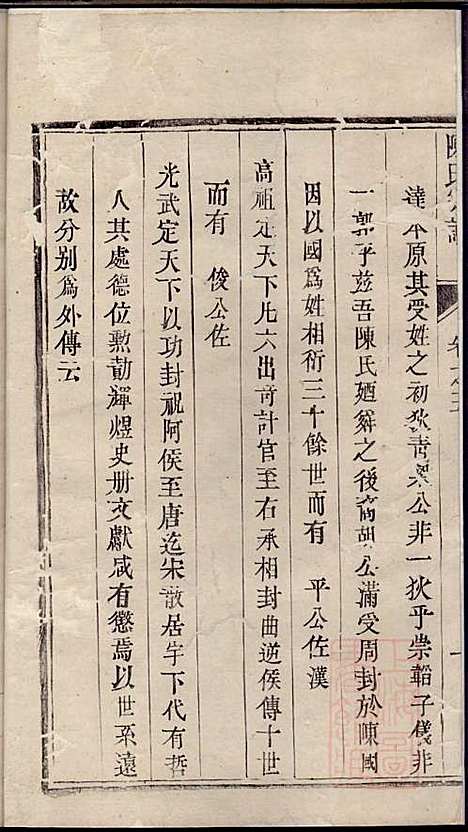 陳氏宗譜
達本原其受姓之初狄青梁公非一狄乎崇韜子儀非
一郭乎茲吾陳氏廼舜之後裔胡公滿受周封於陳國
因以國為姓相衍三十餘世而有 平公佐漢
高祖定天下凡六出奇計官至右丞相封曲逆侯傳十世
而有 俊公佐
光武定天下以功封祝阿侯至唐迄宋散居宇下代有哲
人其處德位勲勣輝煌史册文獻咸有懲焉以世系遠
故分别為外傳云